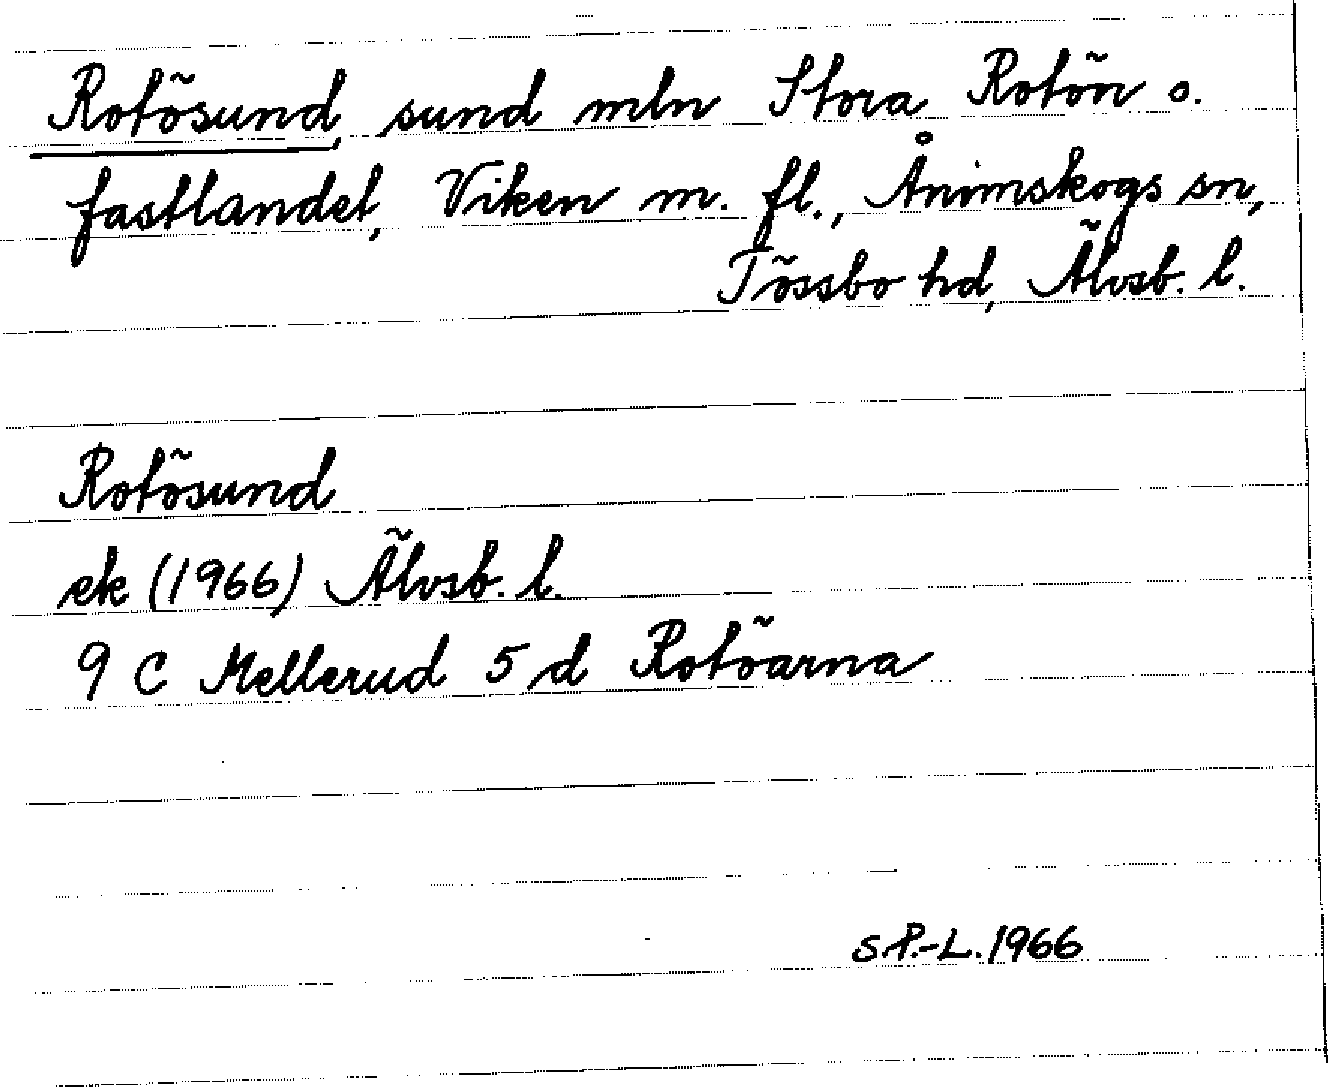 Rotösund, sund mln Stora Rotön o.
fastlandet, Viken m. fl., Ånimskogs sn,
Tössbo hd, Älvsb. l.
Rotösund
ek (1966) Älvsb. l.
9 C Mellerud 5 d Rotöarna
S.P.-L. 1966